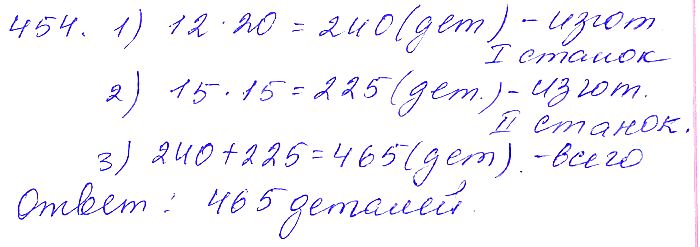 454. 1) 12 · 20 = 240 (дет) - изгот
I станок
2) 15 · 15 = 225 (дет.) - изгот.
II станок.
3) 240 + 225 = 465 (дет). - всего
Ответ: 465 деталей.